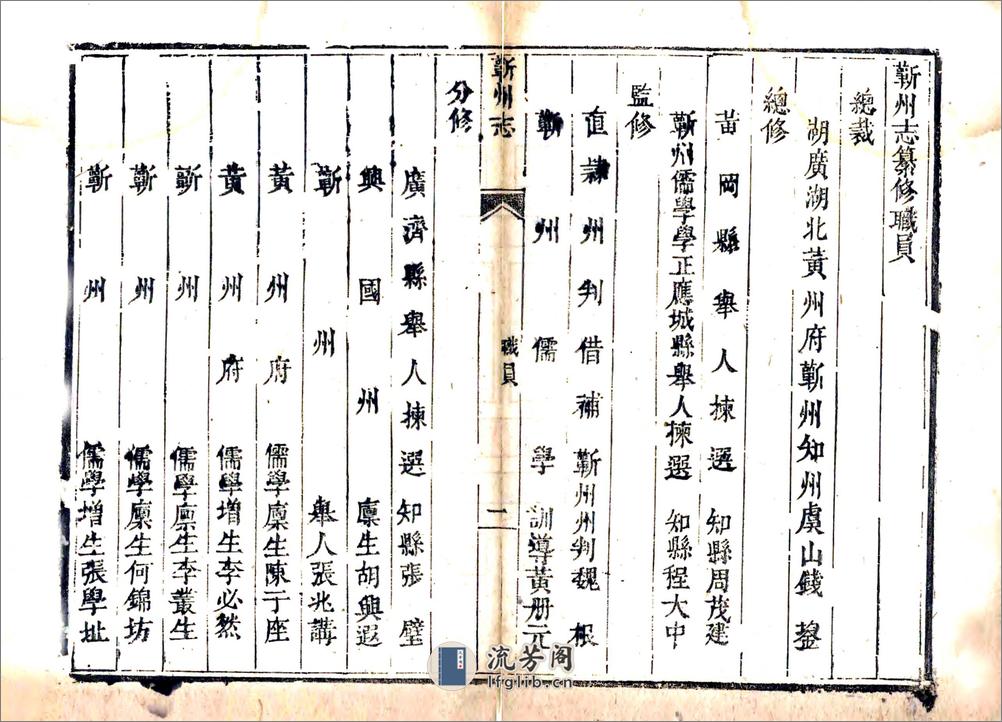 蘄州志纂修職員
總裁
湖廣湖北黃州府蘄州知州虞山錢鋆
總修
黃岡縣舉人揀選知縣周茂建
蘄州儒學學正應城縣舉人揀選知縣程大中
監修
直隸州判借補蘄州州判魏根
蘄州儒學訓導黃册元
蘄州志
職員
二
分修
廣濟縣舉人揀選知縣張璧
興國州廩生胡興遐
蘄州舉人張兆講
黃州府儒學廩生陳于座
黃州府儒學增生李必然
蘄州儒學廩生李叢生
蘄州儒學廩生何錦坊
蘄州儒學增生張學址
流芳閣
lfglib.cn